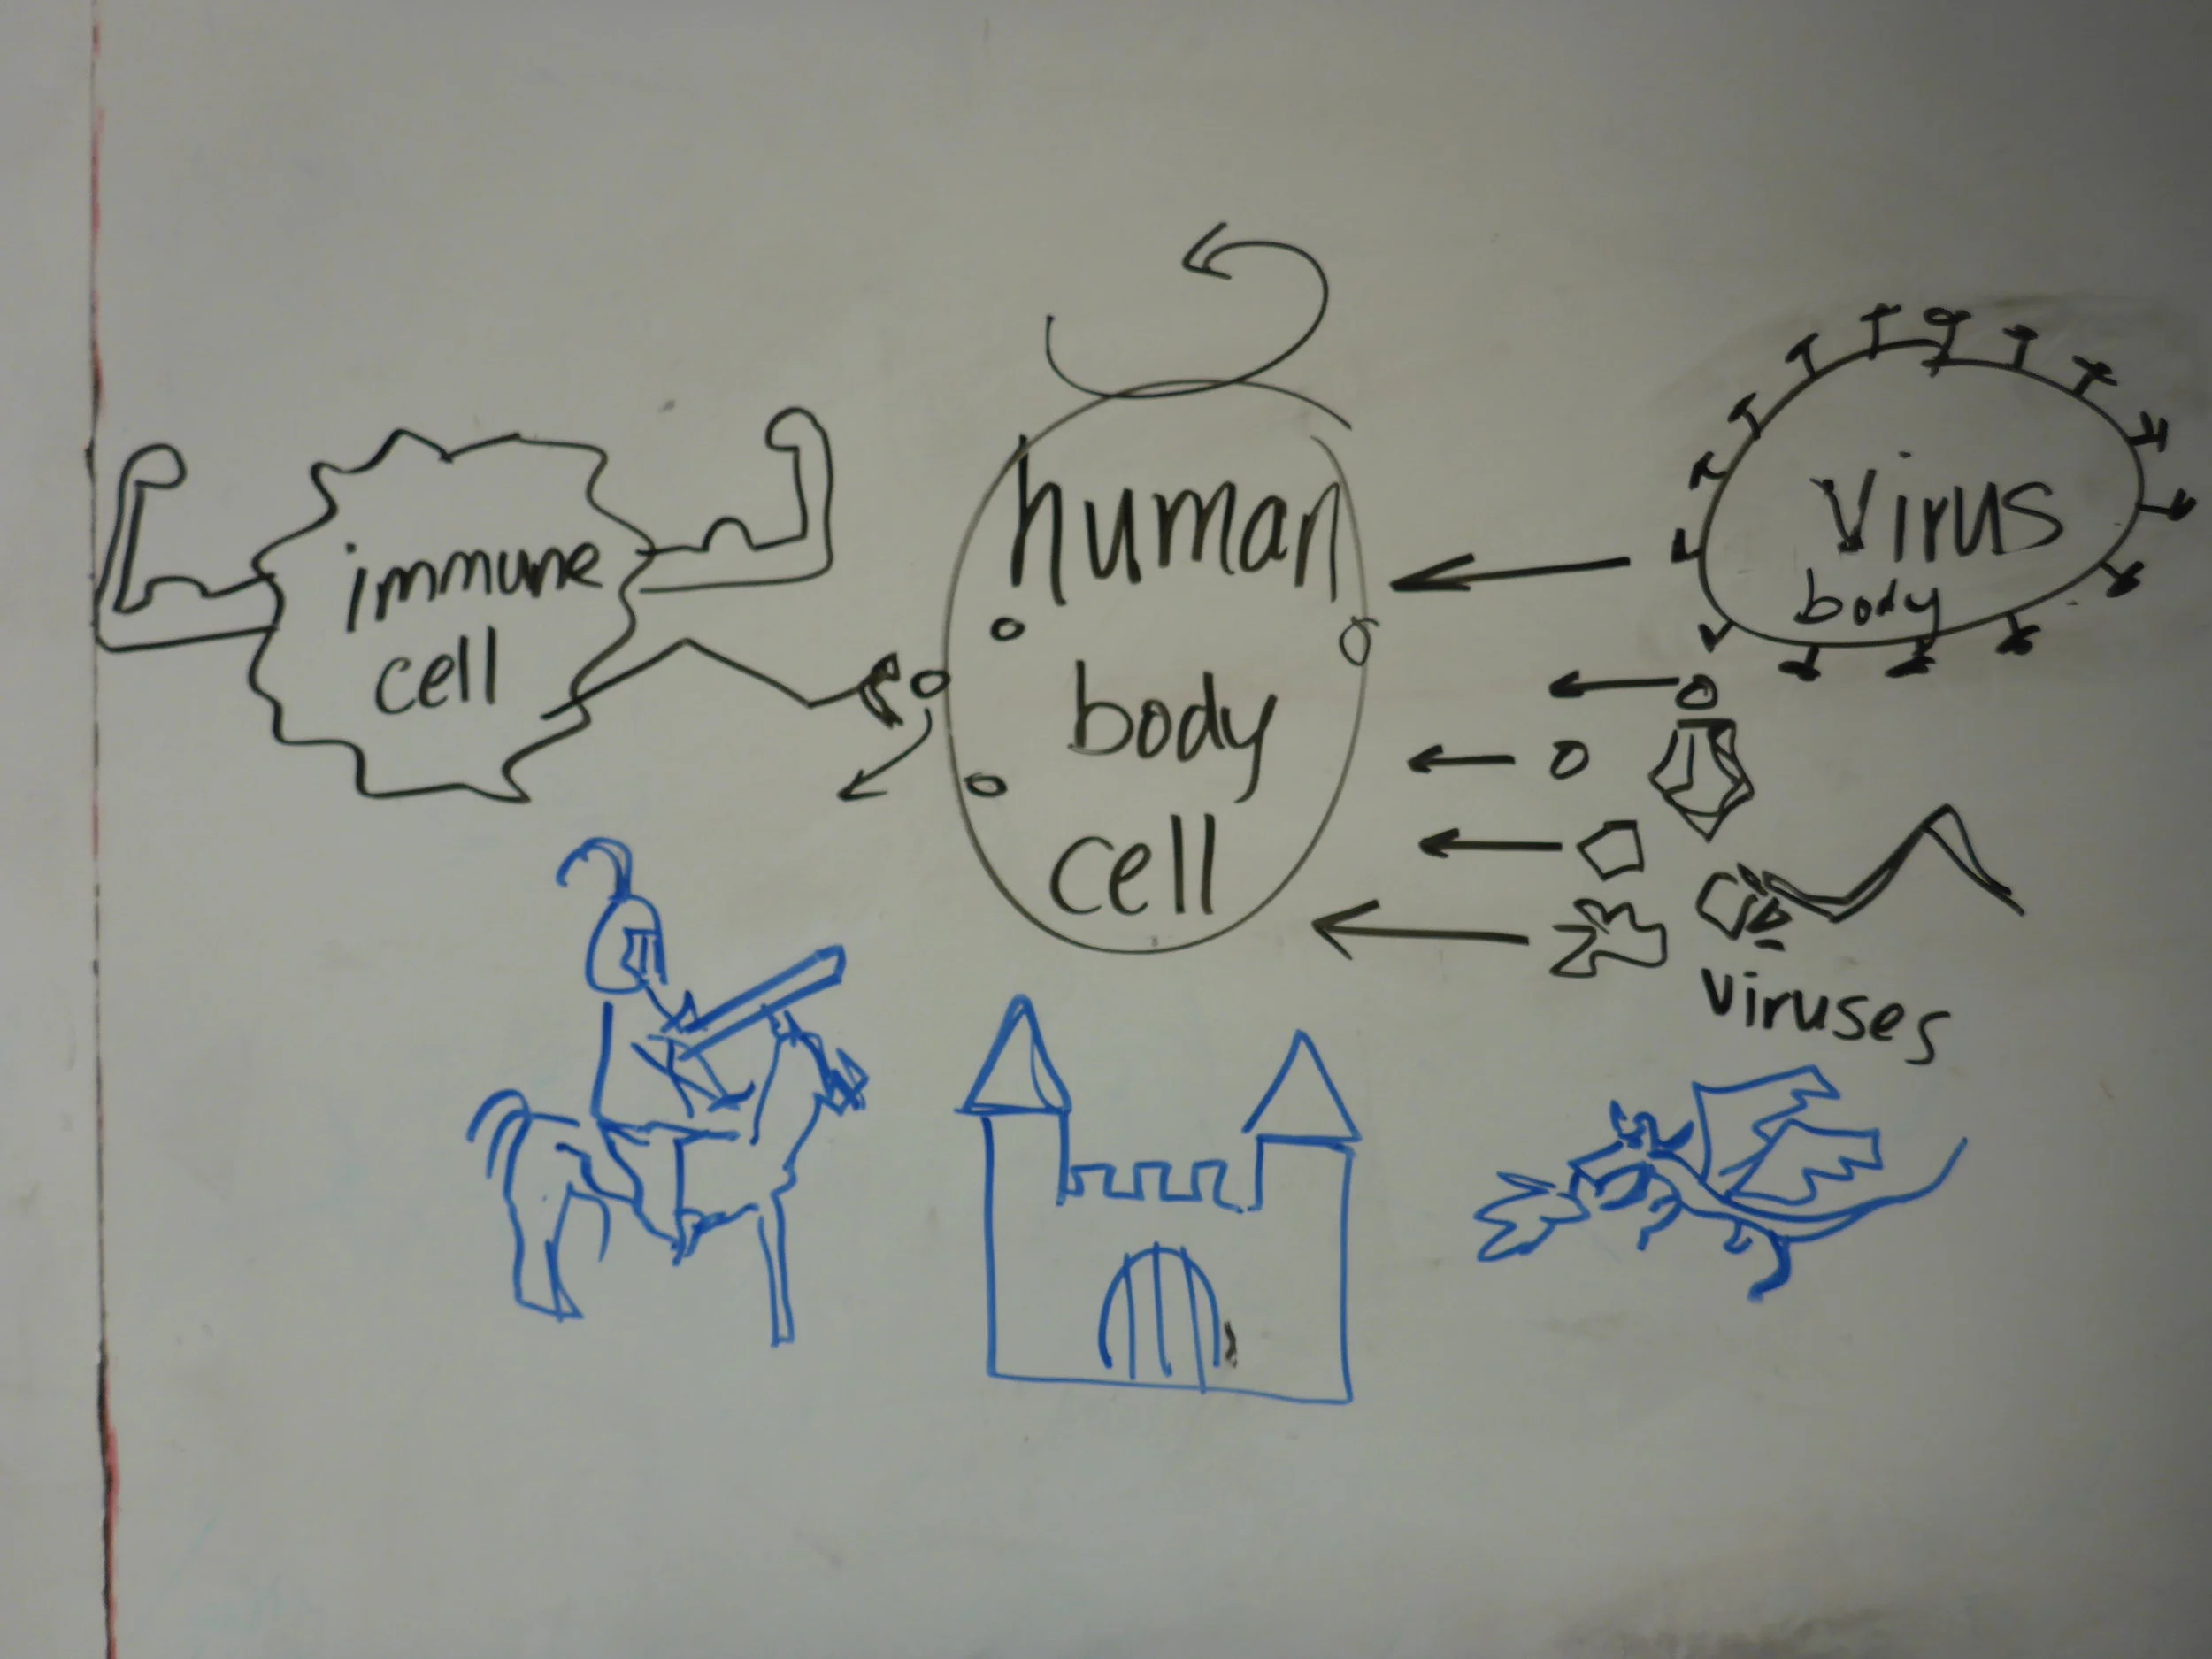 immune
cell
human
body
cell
Virus
body
viruses